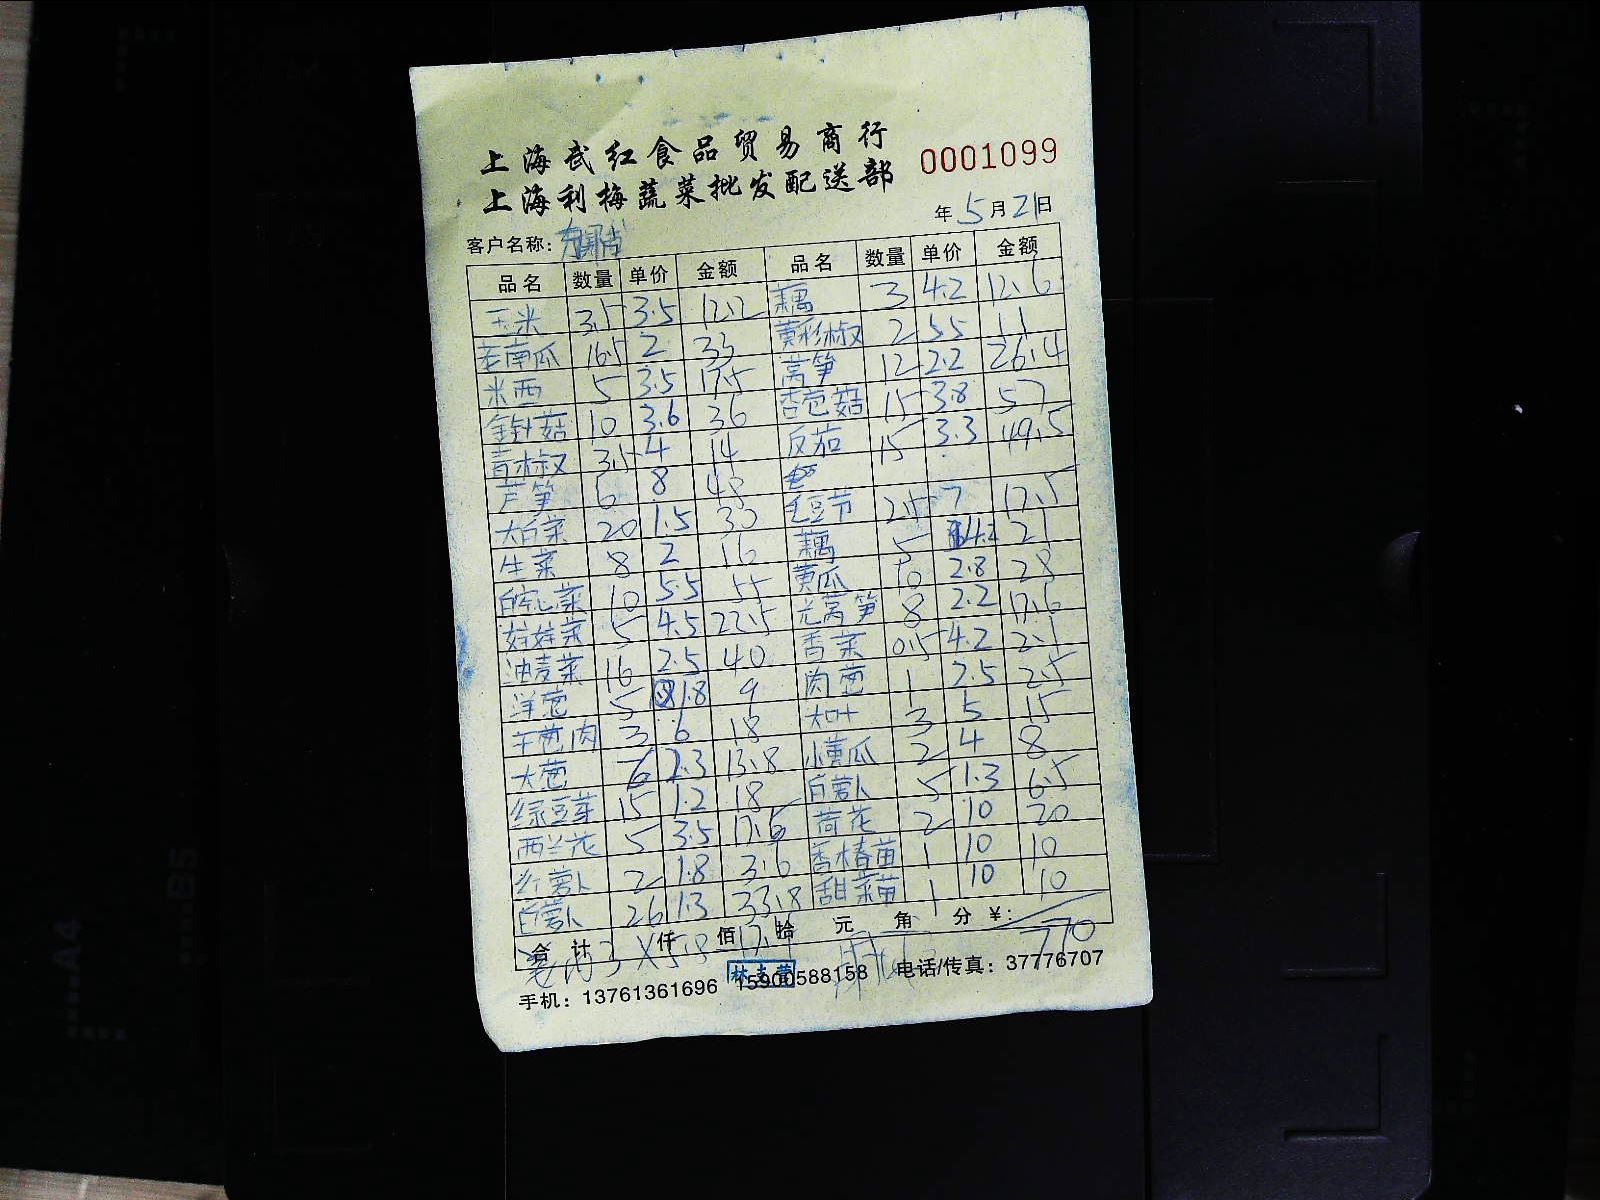 上海武红食品贸易商行
上海利梅蔬菜批发配送部
0001099
年 5 月 21 日
客户名称:
品名 数量 单价 金额 品名 数量 单价 金额
玉米 3.5 3.5 12.2 藕 3 4.2 12.6
老南瓜 16.5 2 33 黄彩椒 2 5.5 11
米西 5 3.5 17.5 莴笋 12 2.2 26.4
金针菇 10 3.6 36 杏苞菇 15 3.8 57
青椒 3.5 4 14 反茄 15 3.3 49.5
芦笋 6 8 48
大白菜 20 1.5 30 毛豆节 2.5 7 17.5
生菜 8 2 16 藕 5 4.2 21
白心菜 10 5.5 55 黄瓜 10 2.8 28
娃娃菜 5 4.5 22.5 光莴笋 8 2.2 17.6
油麦菜 16 2.5 40 香菜 0.5 4.2 2.1
洋葱 5 1.8 9 肉葱 1 2.5 2.5
王葱肉 3 6 18 大叶 3 5 15
大葱 6 2.3 13.8 小黄瓜 2 4 8
绿豆芽 15 1.2 18 白萝卜 5 1.3 6.5
西兰花 5 3.5 17.5 荷花 2 10 20
红萝卜 2 1.8 3.6 香椿苗 1 10 10
白萝卜 26 1.3 33.8 甜菜苗 1 10 10
合计 仟 佰 拾 元 角 分 ¥: 770
3 X 5.8 17.4
林志
手机: 13761361696 15900588158 电话/传真: 37776707